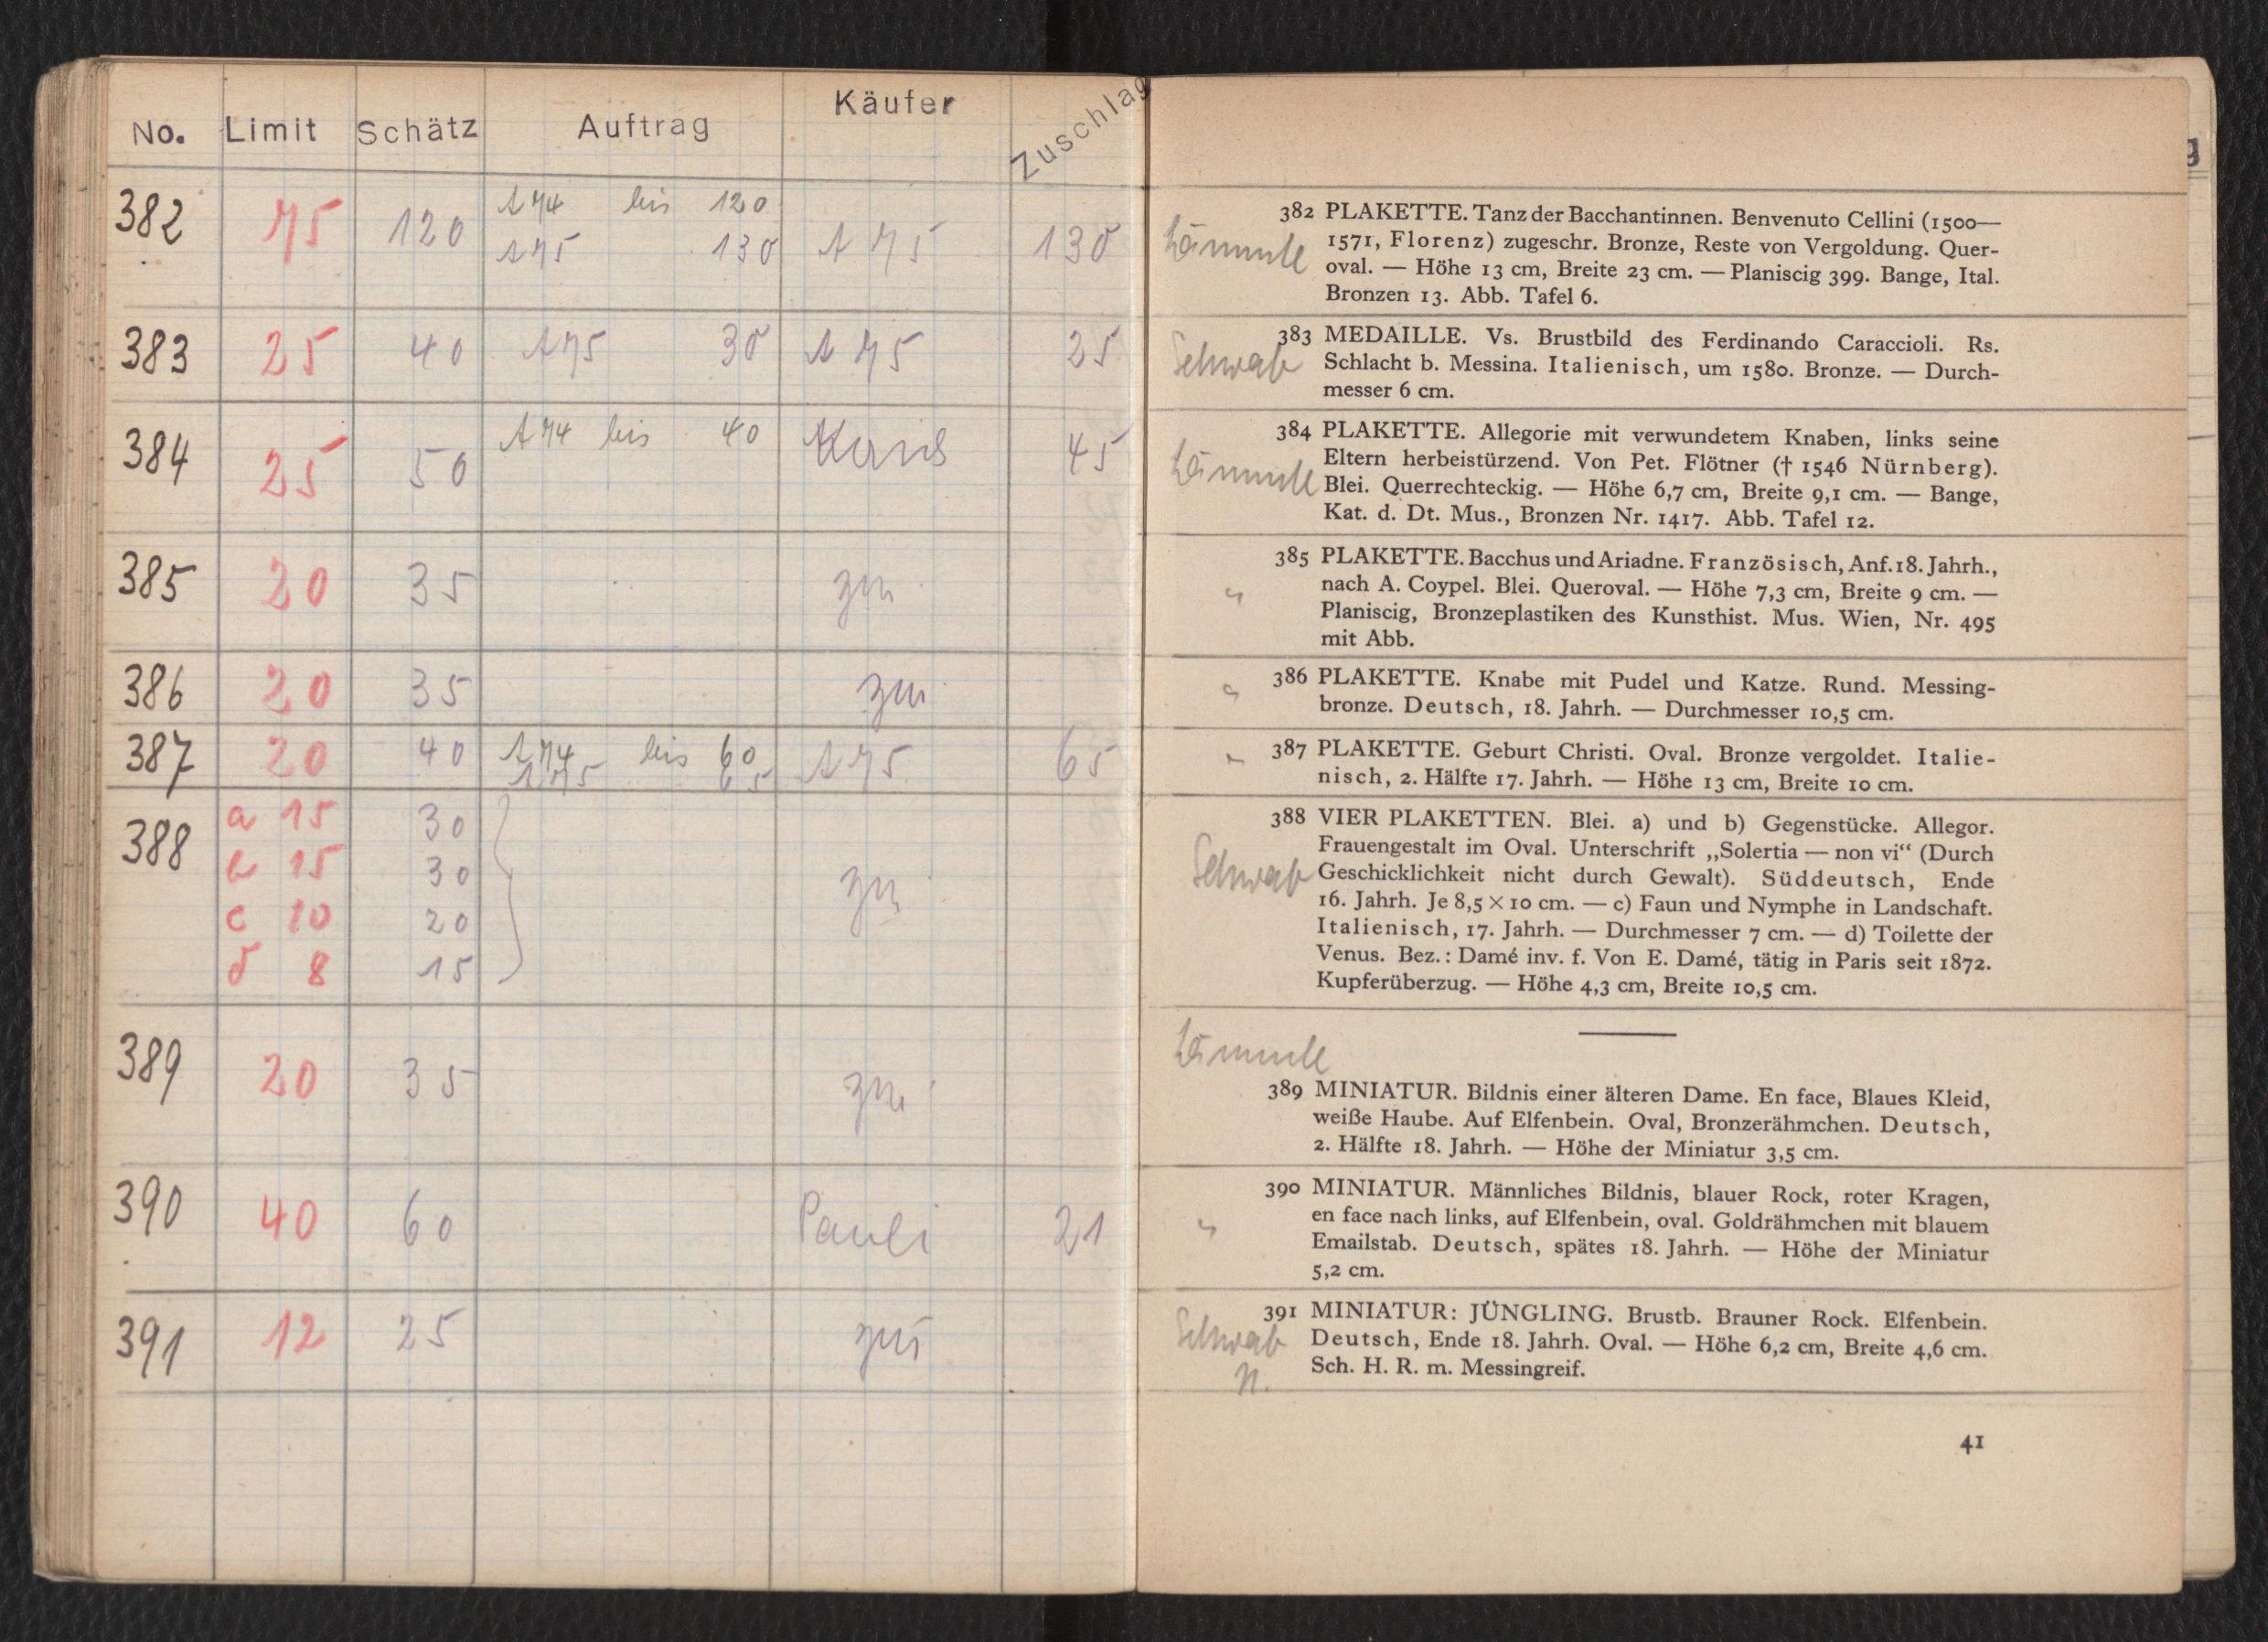 No. Limit Schätz Auftrag Käufer Zuschlag
382 75 120 A 74 bis 120
A 75 130 A 75 130
383 25 40 A 75 30 A 75 25
384 25 50 A 74 bis 40 45
385 20 35 zu
386 20 35 zu
387 20 40 A 74 bis 60 A 75 65
A 75 65
388 a 15 30
b 15 30 zu
c 10 20
d 8 15
389 20 35 zu
390 40 60 Pauli 21
391 12 25 zu
382 PLAKETTE. Tanz der Bacchantinnen. Benvenuto Cellini (1500—
Lämmle 1571, Florenz) zugeschr. Bronze, Reste von Vergoldung. Quer-
oval. — Höhe 13 cm, Breite 23 cm. — Planiscig 399. Bange, Ital.
Bronzen 13. Abb. Tafel 6.
383 MEDAILLE. Vs. Brustbild des Ferdinando Caraccioli. Rs.
Schwab Schlacht b. Messina. Italienisch, um 1580. Bronze. — Durch-
messer 6 cm.
384 PLAKETTE. Allegorie mit verwundetem Knaben, links seine
Lämmle Eltern herbeistürzend. Von Pet. Flötner († 1546 Nürnberg).
Blei. Querrechteckig. — Höhe 6,7 cm, Breite 9,1 cm. — Bange,
Kat. d. Dt. Mus., Bronzen Nr. 1417. Abb. Tafel 12.
385 PLAKETTE. Bacchus und Ariadne. Französisch, Anf. 18. Jahrh.,
" nach A. Coypel. Blei. Queroval. — Höhe 7,3 cm, Breite 9 cm. —
Planiscig, Bronzeplastiken des Kunsthist. Mus. Wien, Nr. 495
mit Abb.
" 386 PLAKETTE. Knabe mit Pudel und Katze. Rund. Messing-
bronze. Deutsch, 18. Jahrh. — Durchmesser 10,5 cm.
" 387 PLAKETTE. Geburt Christi. Oval. Bronze vergoldet. Italie-
nisch, 2. Hälfte 17. Jahrh. — Höhe 13 cm, Breite 10 cm.
388 VIER PLAKETTEN. Blei. a) und b) Gegenstücke. Allegor.
Frauengestalt im Oval. Unterschrift „Solertia — non vi“ (Durch
Schwab Geschicklichkeit nicht durch Gewalt). Süddeutsch, Ende
16. Jahrh. Je 8,5 × 10 cm. — c) Faun und Nymphe in Landschaft.
Italienisch, 17. Jahrh. — Durchmesser 7 cm. — d) Toilette der
Venus. Bez.: Damé inv. f. Von E. Damé, tätig in Paris seit 1872.
Kupferüberzug. — Höhe 4,3 cm, Breite 10,5 cm.
Lämmle
389 MINIATUR. Bildnis einer älteren Dame. En face, Blaues Kleid,
weiße Haube. Auf Elfenbein. Oval, Bronzerähmchen. Deutsch,
2. Hälfte 18. Jahrh. — Höhe der Miniatur 3,5 cm.
390 MINIATUR. Männliches Bildnis, blauer Rock, roter Kragen,
" en face nach links, auf Elfenbein, oval. Goldrähmchen mit blauem
Emailstab. Deutsch, spätes 18. Jahrh. — Höhe der Miniatur
5,2 cm.
391 MINIATUR: JÜNGLING. Brustb. Brauner Rock. Elfenbein.
Schwab Deutsch, Ende 18. Jahrh. Oval. — Höhe 6,2 cm, Breite 4,6 cm.
N. Sch. H. R. m. Messingreif.
41